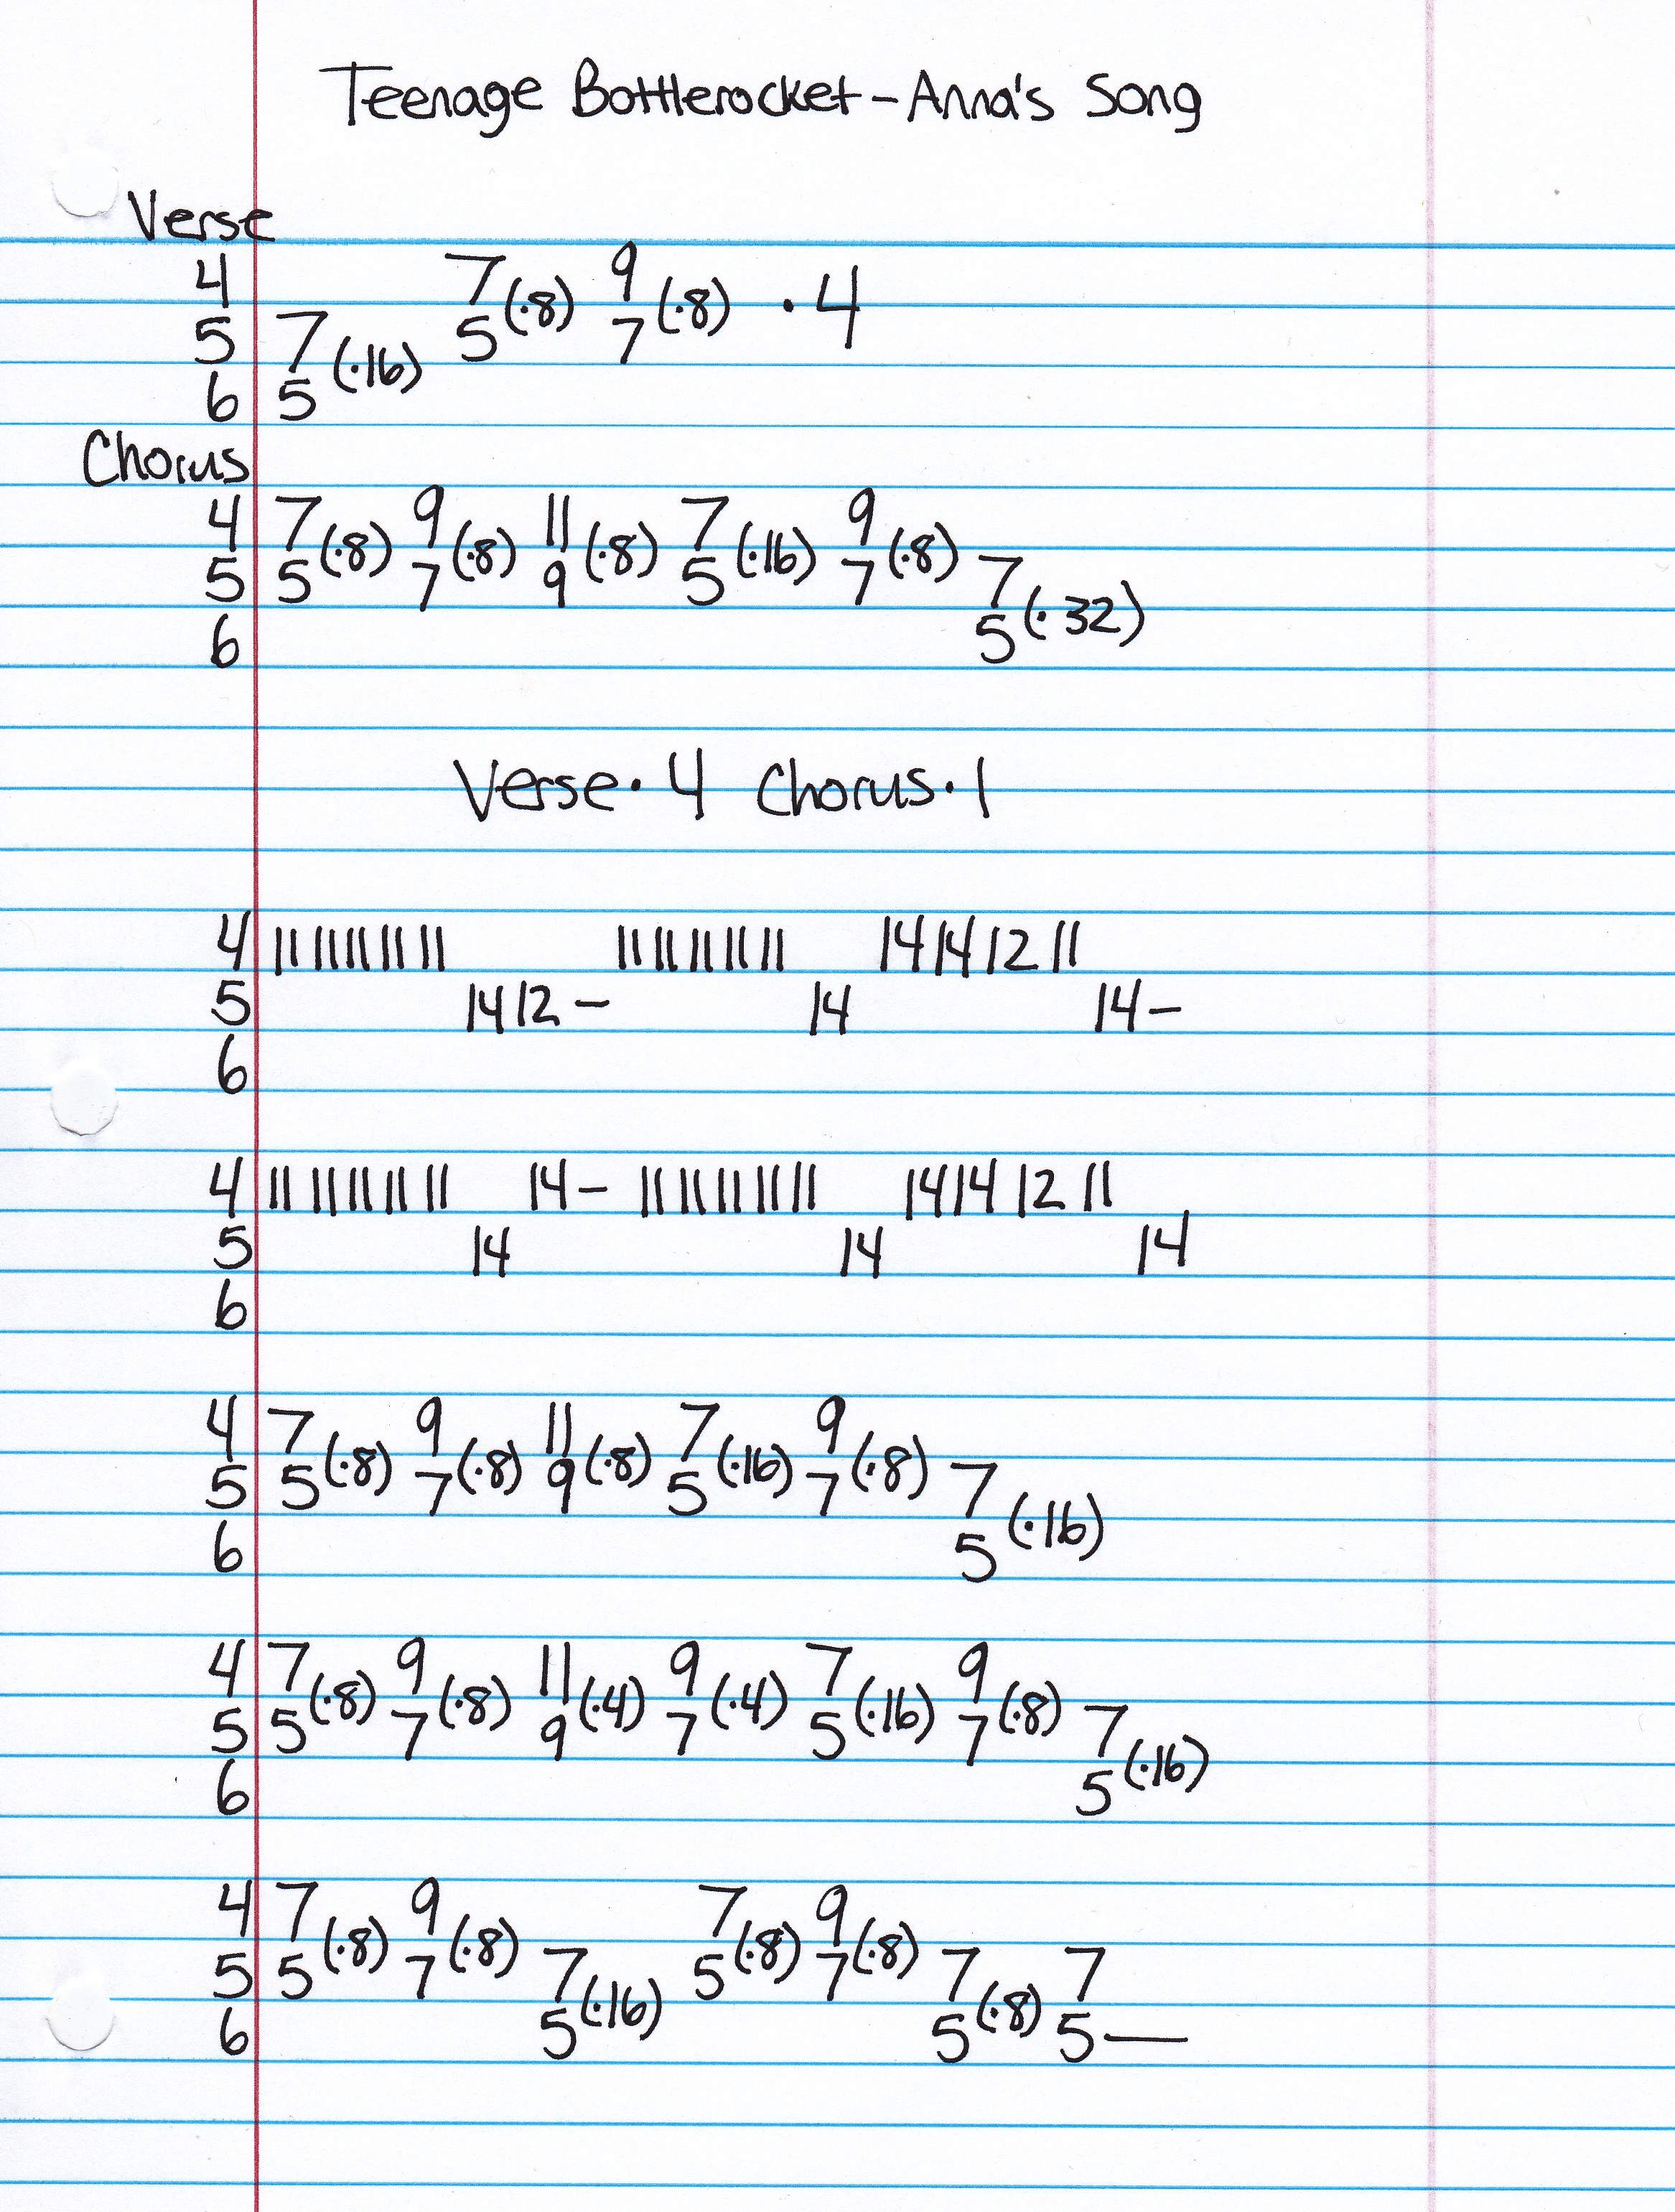 Teenage Bottlerocket - Anna's Song
Verse
4 7 (·8) 9 (·8) · 4
5 7 (·16) 5 7
6 5
Chorus
4 7 (·8) 9 (·8) 11 (·8) 7 (·16) 9 (·8)
5 5 7 9 5 7 7 (·32)
6 5
Verse · 4 Chorus · 1
4 11 11 11 11 11 11 11 11 11 11 14 14 12 11
5 14 12 - 14 14 -
6
4 11 11 11 11 11 14 - 11 11 11 11 11 14 14 12 11
5 14 14 14
6
4 7 (·8) 9 (·8) 11 (·8) 7 (·16) 9 (·8)
5 5 7 9 5 7 7 (·16)
6 5
4 7 (·8) 9 (·8) 11 (·4) 9 (·4) 7 (·16) 9 (·8)
5 5 7 9 7 5 7 7 (·16)
6 5
4 7 (·8) 9 (·8) 7 (·8) 9 (·8)
5 5 7 7 (·16) 5 7 7 (·8) 7
6 5 5 5 —